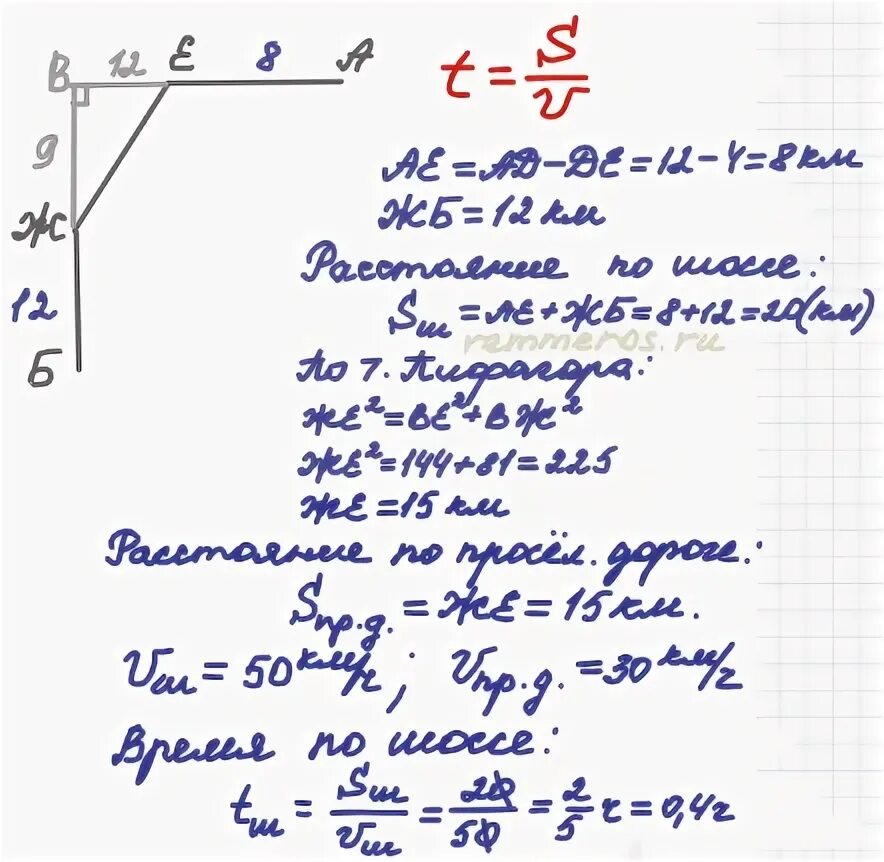 В 12 Е 8 А
t = S/v
9
АЕ = АД – ДЕ = 12 – 4 = 8 км
Ж
ЖБ = 12 км
Расстояние по шоссе:
12
Sш = АЕ + ЖБ = 8 + 12 = 20 (км)
rammeros.ru
Б
По т. Пифагора:
ЖЕ² = ВЕ² + ВЖ²
ЖЕ² = 144 + 81 = 225
ЖЕ = 15 км
Расстояние по просёл. дороге:
Sпр.д. = ЖЕ = 15 км.
Vш = 50 км/ч ; Vпр.д. = 30 км/ч
Время по шоссе:
tш = Sш/Vш = 20/50 = 2/5 ч = 0,4ч